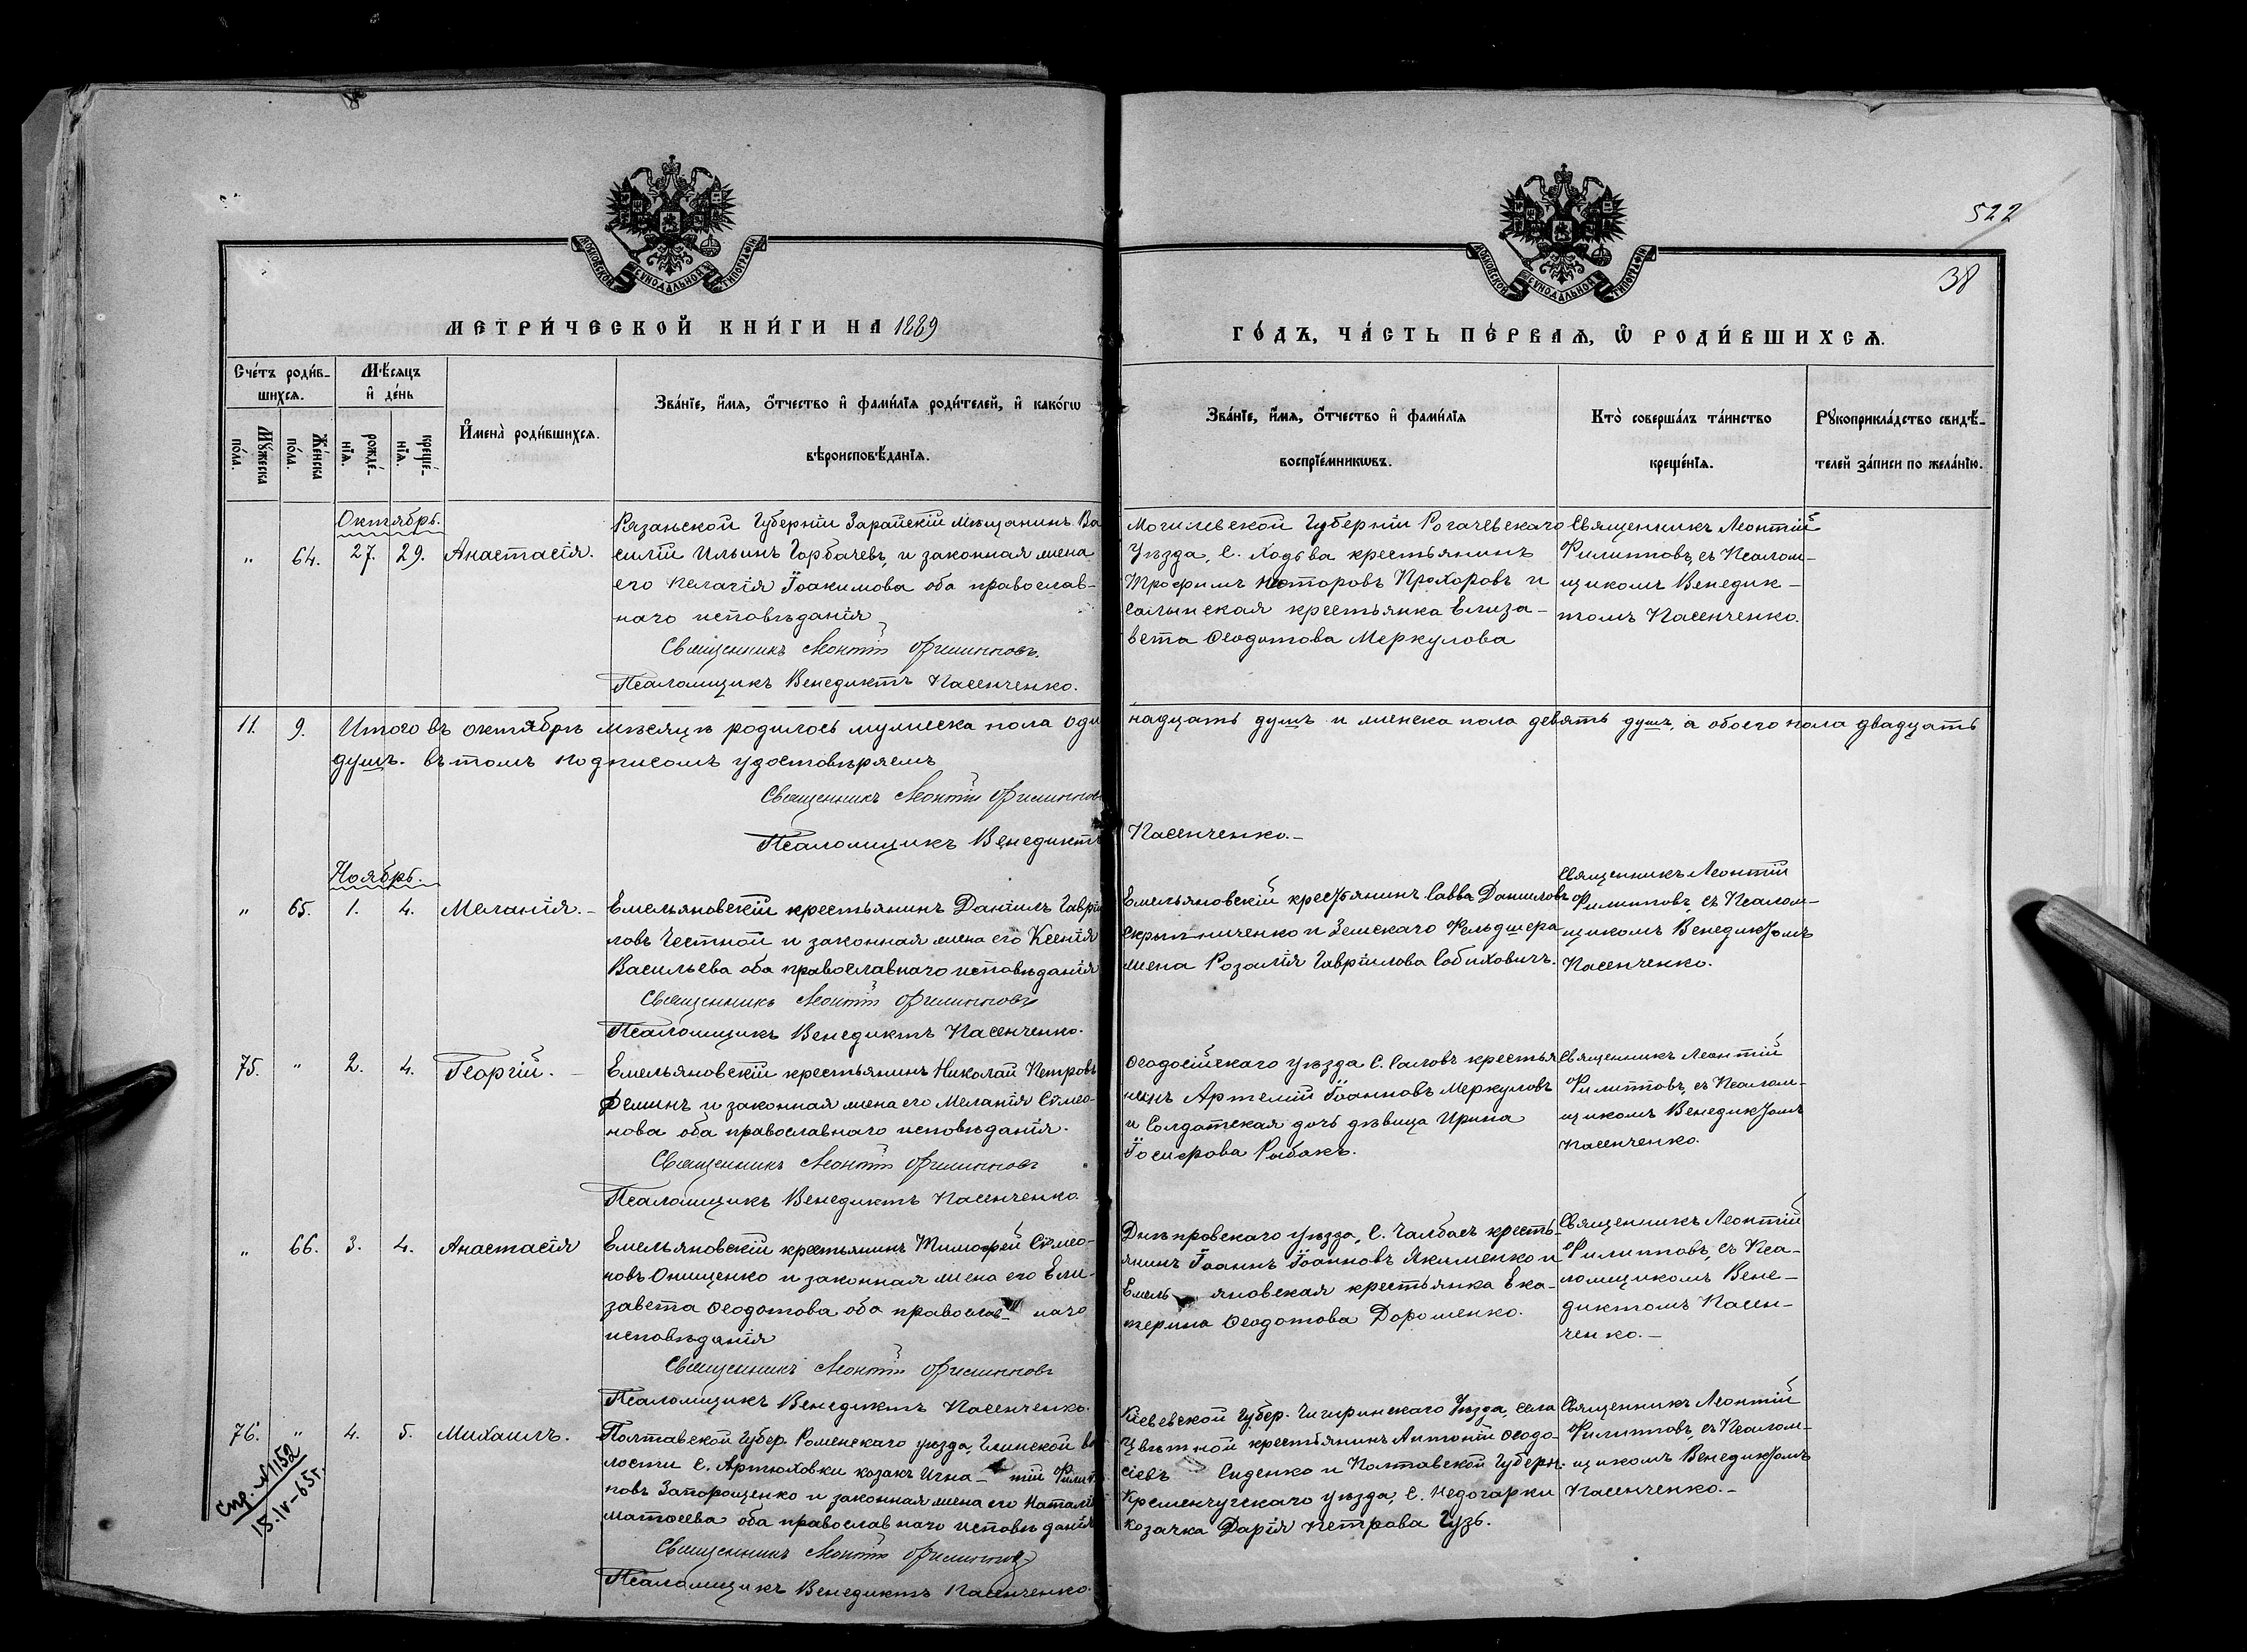 522
38
МОСКОВСКОЙ СѴНОДАЛЬНОЙ ТИПОГРАФІИ
МОСКОВСКОЙ СѴНОДАЛЬНОЙ ТИПОГРАФІИ
МЕТРИ́ЧЕСКОЙ КНИ́ГИ НА 1889
ГО́ДЪ, ЧА́СТЬ ПЕ́РВАѦ, Ѡ҆ РОДИ́ВШИХСѦ.
Сче́тъ роди́в-
шихсѧ.
Мꙋ́жеска по́ла.
Же́нска по́ла.
Мѣ́сяцъ
и҆ де́нь
рожде́-нїѧ.
креще́-нїѧ.
И҆мена̀ роди́вшихсѧ.
Зва́нїе, и҆́мѧ, ѻ҆́тчество и҆ фами́лїѧ роди́телей, и҆ како́гѡ
вѣроисповѣ́данїѧ.
Зва́нїе, и҆́мѧ, ѻ҆́тчество и҆ фами́лїѧ
воспрїе́мникѡвъ.
Кто̀ соверша́лъ та́инство
креще́нїѧ.
Рꙋкоприкла́дство свидѣ́-
телей за́писи по жела́нїю.
Октябрь.
„ 64. 27. 29. Анастасія.
Рязанской Губерніи Зарайскій мѣщанинъ Ва
силій Ильинъ Горбачевъ, и законная жена
его Пелагія Іоакимова оба православ-
наго исповѣданія
Священникъ Леонтій Филипповъ.
Псаломщикъ Венедиктъ Пасенченко.
Могилевской Губерніи Рогачевскаго
Уѣзда, С. Ходьва крестьянинъ
Трофимъ Прохоровъ и
крестьянка Елиза-
вета Ѳеодотова Меркулова
Священникъ Леонтій
Филипповъ, съ Псалом-
щикомъ Венедик-
томъ Пасенченко.
11. 9. Итого въ октябрѣ мѣсяцѣ родилось мужеска пола оди
надцать душъ и женска пола девять душъ, а обоего пола двадцать
душъ. въ томъ подписомъ удостовѣряемъ
Священникъ Леонтій Филиппов
Псаломщикъ Венедиктъ
Пасенченко.-
Ноябрь.
„ 65. 1. 4. Меланія. -
Емельяновскій крестьянинъ Даніилъ Гаврі
ловъ Честной и законная жена его Ксенія
Васильева оба православнаго исповѣданія
Священникъ Леонтій Филипповъ
Псаломщикъ Венедиктъ Пасенченко.
Емельяновскій крестьянинъ Савва Даниловъ
Скрыпниченко и Земскаго Фельдшера
жена Розалія Гавріилова Сабиховичъ.
Священникъ Леонтій
Филипповъ, съ Псалом-
щикомъ Венедиктомъ
Пасенченко.
75. „ 2. 4. Георгій. -
Емельяновскій крестьянинъ Николай Петровъ
Феминъ и законная жена его Меланія Сѵмео-
нова оба православнаго исповѣданія.
Священникъ Леонтій Филипповъ
Псаломщикъ Венедиктъ Пасенченко.
Ѳеодосійскаго уѣзда С. Саловъ крестья
нинъ Артемій Іоанновъ Меркуловъ
и Солдатская дочь дѣвица Ирина
Іосифова Рыбакъ.
Священникъ Леонтій
Филипповъ, съ Псалом-
щикомъ Венедиктомъ
Пасенченко.
„ 66. 3. 4. Анастасія
Емельяновскій крестьянинъ Тимофей Сѵмео-
новъ Онищенко и законная жена его Ели-
завета Ѳеодотова оба православ- наго
исповѣданія
Священникъ Леонтій Филипповъ
Псаломщикъ Венедиктъ Пасенченко.
Днѣпровскаго уѣзда, С. Чалбасъ кресть-
янинъ Іоаннъ Іоанновъ Якименко и
Емель яновская крестьянка Ека-
терина Ѳеодотова Дороменко.
Священникъ Леонтій
Филипповъ, съ Пса-
ломщикомъ Вене-
диктомъ Пасен-
ченко.-
76. „ 4. 5. Михаилъ.
Полтавской Губер. Роменскаго уѣзда, Глинской во
лости С. Артюховки козакъ Игна- тій Филип
повъ Запорощенко и законная жена его Наталія
Матѳеева оба православнаго исповѣданія
Священникъ Леонтій Филипповъ
Псаломщикъ Венедиктъ Пасенченко.
Кіевевской Губер. Чигиринскаго Уѣзда, села
Цвѣтной крестьянинъ Антоній Ѳеодо-
сіевъ Сиденко и Полтавской Губерн.
Кременчугскаго уѣзда, С. Недогарки
козачка Дарія Петрова Гузь.
Священникъ Леонтій
Филипповъ, съ Псалом-
щикомъ Венедиктомъ
Пасенченко.-
Спр. №1152
15.IV-65г.